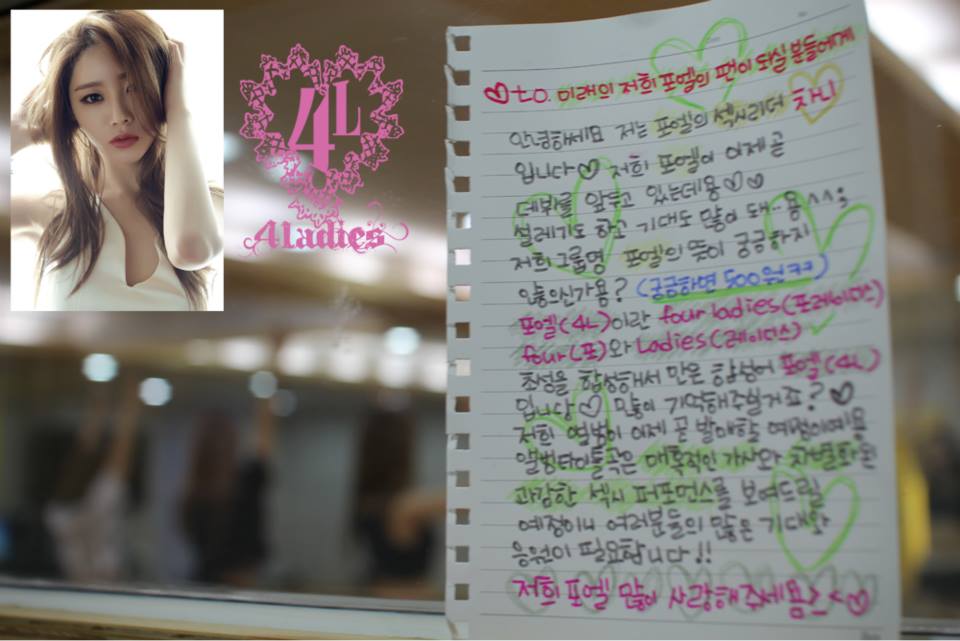 4L
4Ladies
♡to. 미래의 저희 포엘의 팬이 되실 분들에게
안녕하세요 저는 포엘의 섹시리더 차니
입니다♡ 저희 포엘이 이제 곧
데뷔를 앞두고 있는데용♡♡
설레기도 하고 기대도 많이 돼..용^^;
저희 그룹명 포엘의 뜻이 궁금하지
않으신가용? (궁금하면 500원ㅋㅋ)
포엘(4L)이란 four ladies(포레이디스)
four(포)와 Ladies(레이디스)
합성해서 만든 합성어 포엘(4L)
입니당♡ 많이 기억해주실거죠?♡
저희 앨범이 이제 곧 발매할 예정이예용
앨범타이틀곡은 매혹적인 가사와 차별화된
과감한 섹시 퍼포먼스를 보여드릴
예정이니 여러분들의 많은 기대와
응원이 필요합니다!!
저희 포엘 많이 사랑해주세용><♡